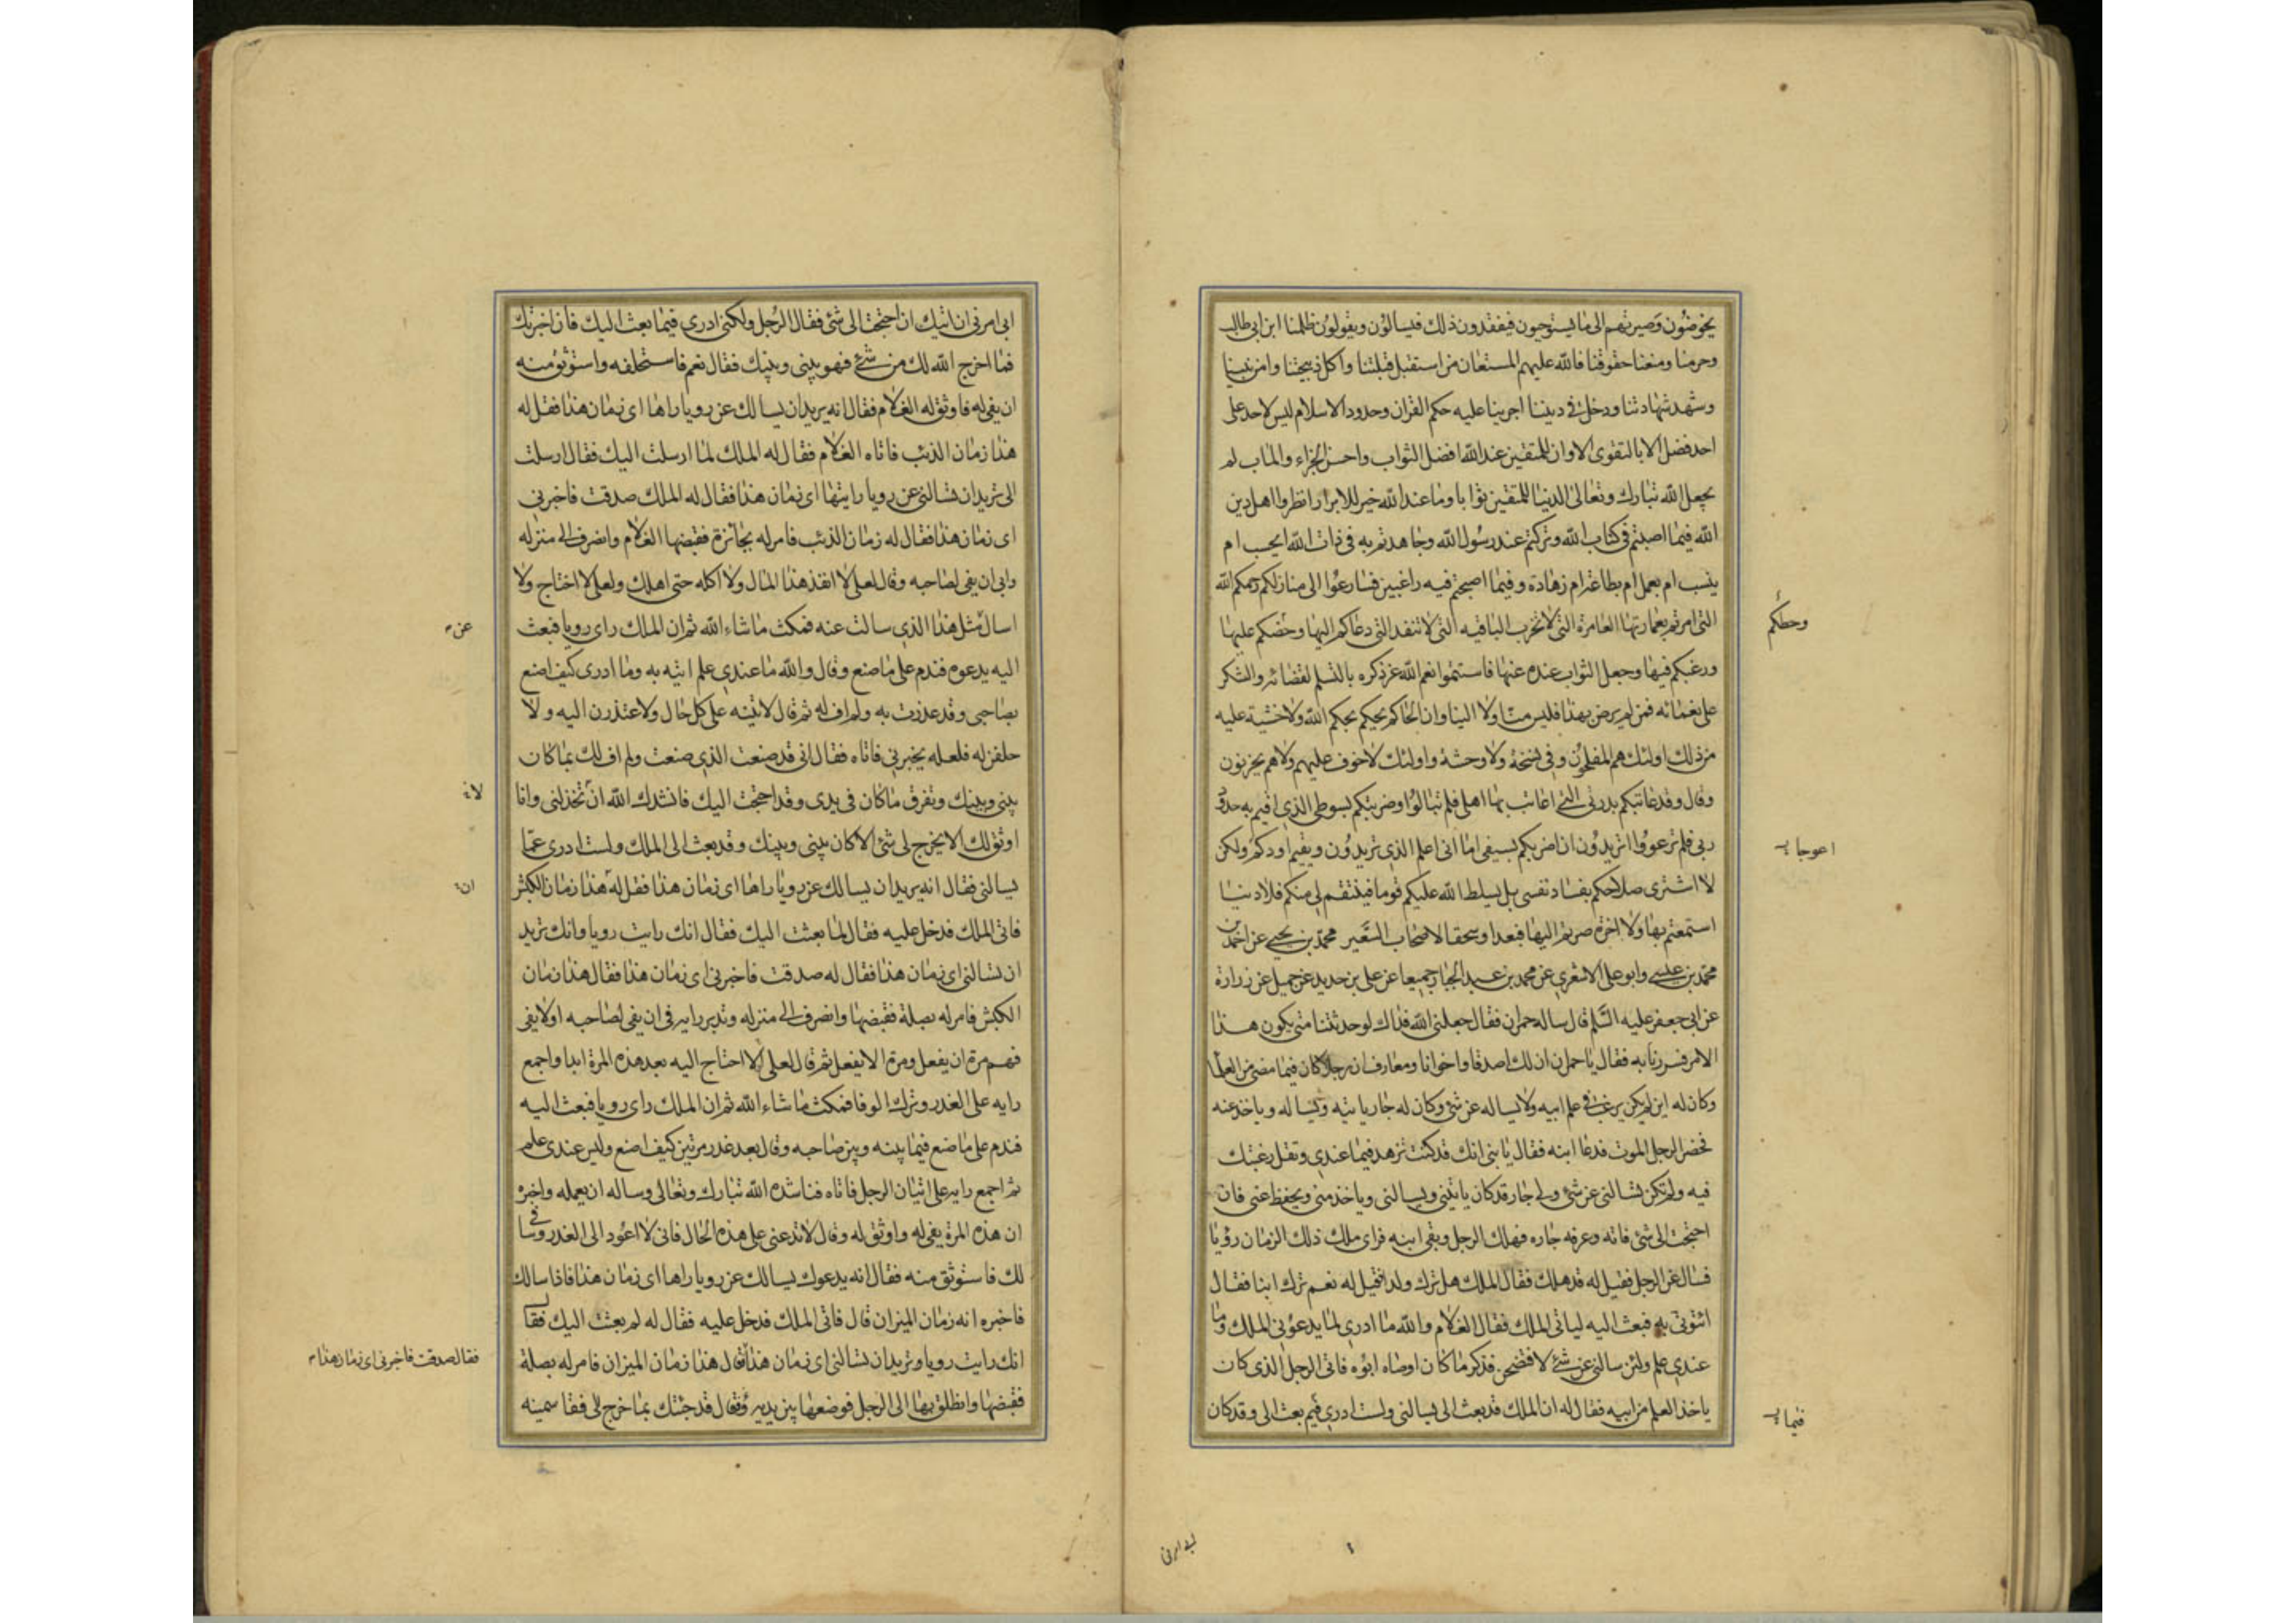 يخوضون وصيرتهم الى ما يستوجبون فيفقدون ذلك فيسالون ويقولون ظلمنا ابن ابي طالب
وحرمنا ومنعنا حقوقنا فالله عليهم المستعان من استقبل قبلتنا واكل ذبيحتنا وامن بنبينا
وشهد شهادتنا ودخل في ديننا اجرينا عليه حكم القران وحدود الاسلام ليس لاحد على
احد فضل الا بالتقوى الا وان للمتقين عند الله افضل الثواب واحسن الجزاء والماب لم
يجعل الله تبارك وتعالى الدنيا للمتقين ثوابا وما عند الله خير للابرار انظروا اهل دين
الله فيما اصبتم في كتاب الله وتركتم عند رسول الله وجاهدتم به في ذات الله ابحسب ام
بنسب ام بعمل ام بطاعة ام زهادة وفيما اصبحتم فيه راغبين فسارعوا الى منازلكم رحمكم الله
التي امرتم بعمارتها العامرة التي لا تخرب الباقيه التي لا تنفد التي دعاكم اليها وحضكم عليها
وحطكم
ورغبكم فيها وجعل الثواب عنده عنها فاستتموا نعم الله عز ذكره بالتسلم لقضائه والشكر
على نعمائه فمن لم يرض بهذا فليس منا ولا الينا وان الحاكم يحكم بحكم الله ولا خشية عليه
من ذلك اولئك هم المفلحون وفي نسخة ولا وحشة واولئك لا خوف عليهم ولا هم يحزنون
وقال وقد عاتبتكم بدرتي التي اعاتب بها اهلي فلم تبالوا وضربتكم بسوطي الذي اقيم به حدود
ربي فلم ترعووا اتريدون ان اضربكم بسيفي اما اني اعلم الذي تريدون ويقيم اودكم ولكن
اعوجا
لا اشتري صلاحكم بفساد نفسي بل يسلط الله عليكم قوما فينتقم لي منكم فلا دنيا
استمتعتم بها ولا اخرة صرتم اليها فبعدا وسحقا لاصحاب السعير محمد بن يحيى عن احمد بن
محمد بن عيسى وابو علي الاشعري عن محمد بن عبد الجبار جميعا عن علي بن حديد عن جميل عن زرارة
عن ابي جعفر عليه السلم قال ساله حمران فقال جعلني الله فداك لو حدثتنا متى يكون هذا
الامر فسررنا به فقال يا حمران ان لك اصدقا واخوانا ومعارف ان رجلا كان فيما مضى من العلما
وكان له ابن لم يكن يرغب في علم ابيه ولا يساله عن شئ وكان له جار ياتيه ويساله وياخذ عنه
فحضر الرجل الموت فدعا ابنه فقال يا بني انك قد كنت تزهد فيما عندي وتقل رغبتك
فيه ولم تكن تسالني عن شئ ولي جار قد كان ياتيني ويسالني وياخذ مني ويحفظ عني فان
احتجت الى شئ فاته وعرفه جاره فهلك الرجل وبقي ابنه فراى ملك ذلك الزمان رؤيا
فسال عن الرجل فقيل له قد هلك فقال الملك هل ترك ولدا فقيل له نعم ترك ابنا فقال
ائتوني به فبعث اليه لياتي الملك فقال الغلام والله ما ادري لما يدعوني الملك وما
عندي علم ولئن سالني عن شئ لافتضحن فذكر ما كان اوصاه ابوه فاتى الرجل الذي كان
ياخذ العلم من ابيه فقال له ان الملك قد بعث الى يسالني ولست ادري فيم بعث الى وقد كان
فيما
ابي امرني ان اتيك ان احتجت الى شئ فقال الرجل ولكني ادري فيما بعث اليك فان اخبرتك
فما اخرج الله لك من شئ فهو بيني وبينك فقال نعم فاستحلفه واستوثق منه
ان يفي له فاوثق له الغلام فقال انه يريد ان يسالك عن رويا راها اى زمان هذا فقل له
هذا زمان الذئب فاتاه الغلام فقال له الملك لما ارسلت اليك فقال ارسلت
الى تريد ان تسالني عن رويا رايتها اى زمان هذا فقال له الملك صدقت فاخبرني
اى زمان هذا فقال له زمان الذئب فامر له بجائزة فقبضها الغلام وانصرف الى منزله
وابى ان يفي لصاحبه وقال لعلى لا انفد هذا المال ولا اكله حتى اهلك ولعلى لا احتاج ولا
اسال مثل هذا الذي سالت عنه فمكث ما شاء الله ثم ان الملك راى رويا فبعث
عن
اليه يدعوه فندم على ما صنع وقال والله ما عندي علم اتيه به وما ادرى كيف اصنع
بصاحبي وقد غدرت به ولم اف له ثم قال لاتينه على كل حال ولاعتذرن اليه ولا
حلفن له فلعله يخبرني فاتاه فقال اني قد صنعت الذي صنعت ولم اف لك بما كان
بيني وبينك وتفرق ما كان في يدي وقد احتجت اليك فانشدك الله ان تخذلني وانا
لا
اوثق لك الا يخرج لي شئ الا كان بيني وبينك وقد بعث الى الملك ولست ادرى عما
يسالني فقال انه يريد ان يسالك عن رويا راها اى زمان هذا فقل له هذا زمان الكبش
ان
فاتى الملك فدخل عليه فقال لما بعثت اليك فقال انك رايت رويا وانك تريد
ان تسالني اى زمان هذا فقال له صدقت فاخبرني اى زمان هذا فقال هذا زمان
الكبش فامر له بصلة فقبضها وانصرف الى منزله وتدبر رايه في ان يفي لصاحبه او لا يفي
فهم مرة ان يفعل ومرة الا يفعل ثم قال لعلى الا احتاج اليه بعد هذه المرة ابدا واجمع
رايه على الغدر وترك الوفا فمكث ما شاء الله ثم ان الملك راى رويا فبعث اليه
فندم على ما صنع فيما بينه وبين صاحبه وقال بعد غدر مرتين كيف اصنع وليس عندى علم
ثم اجمع رايه على اتيان الرجل فاتاه فناشده الله تبارك وتعالى وساله ان يعلمه واخبره
ان هذه المرة يفي له واوثق له وقال لا تدعني على هذه الحال فاني لا اعود الى الغدر وسافي
لك فاستوثق منه فقال انه يدعوك يسالك عن رويا راها اى زمان هذا فاذا سالك
فاخبره انه زمان الميزان قال فاتى الملك فدخل عليه فقال له لم بعثت اليك فقال
انك رايت رويا وتريد ان تسالني اى زمان هذا فقال هذا زمان الميزان فامر له بصلة
فقال صدقت فاخبرني اى زمان هذا
فقبضها وانطلق بها الى الرجل فوضعها بين يديه وقال قد جئتك بما خرج لى فقاسمينه